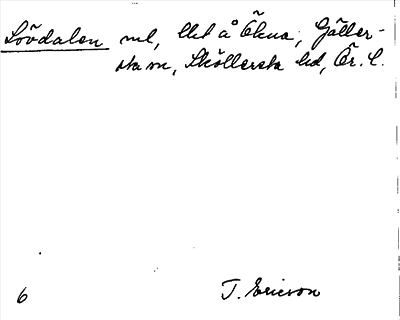 Lövdalen ml, lht å Ökna, Gäller-
sta sn, Sköllersta hd, Ör. l.
6 T. Ericson